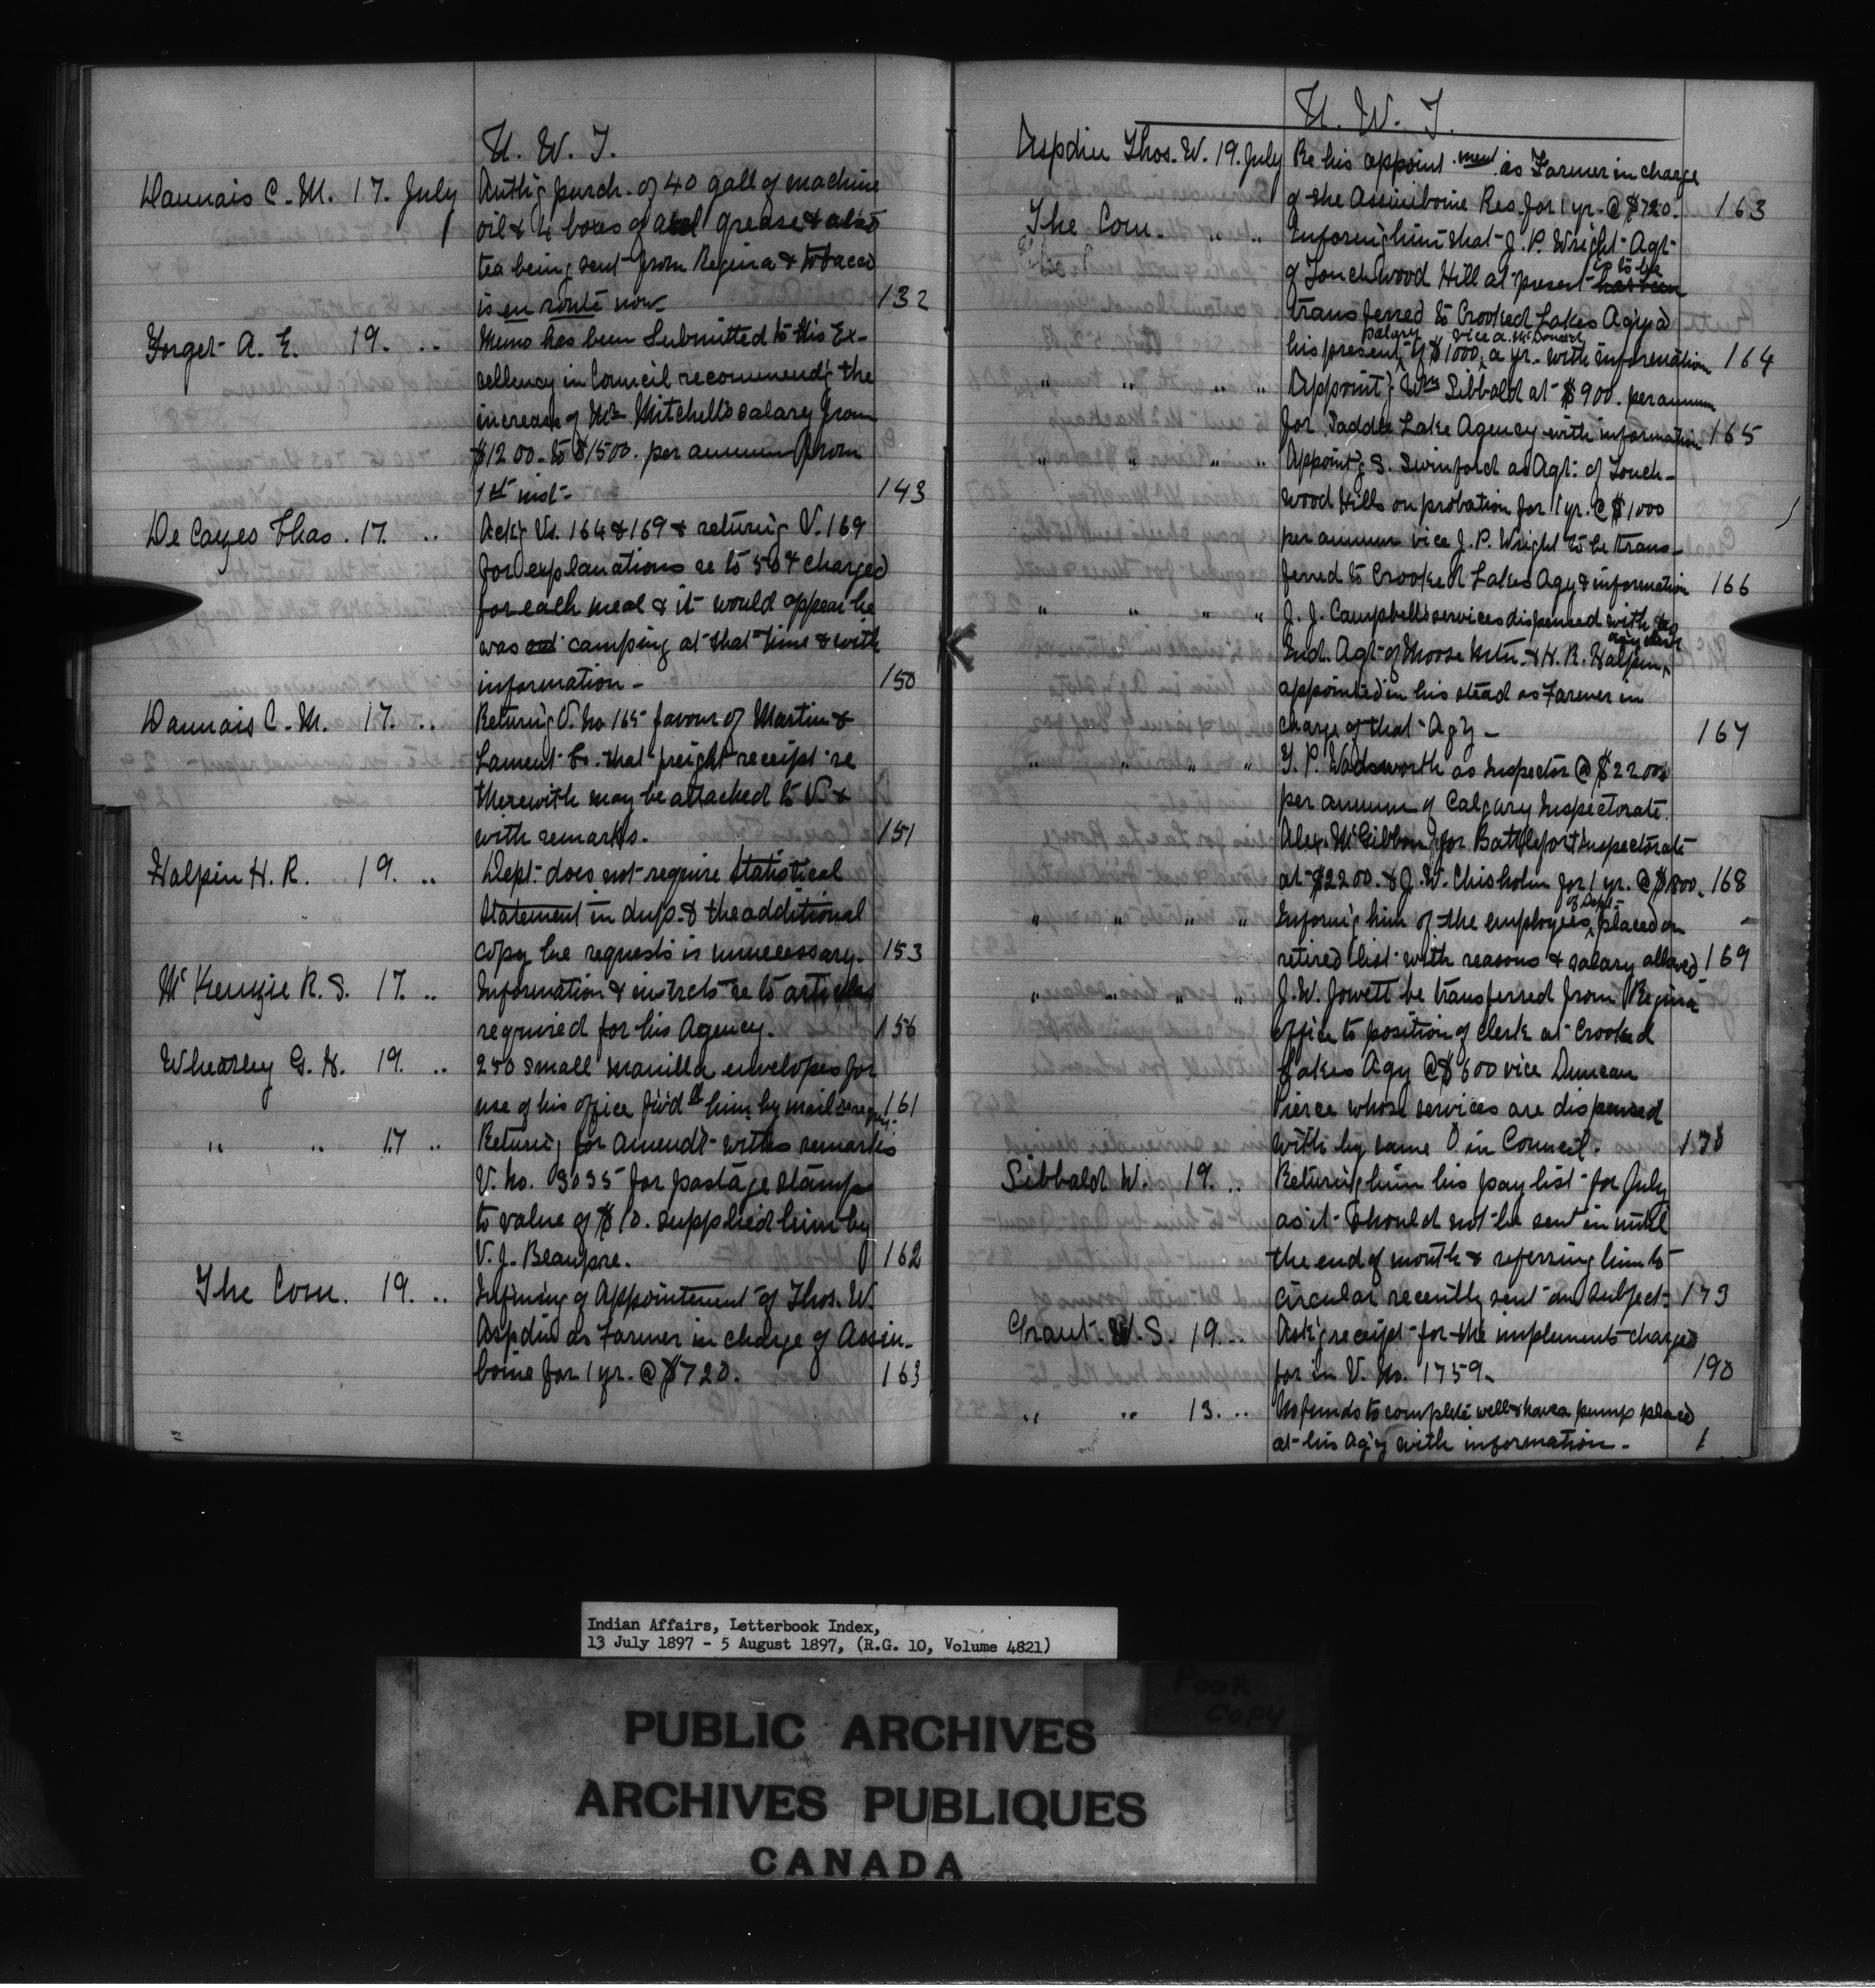 N. W. T.
Daunais C. M. 17. July Auth'g purch. of 40 gall of machine
oil & 4 boxes of axel grease & also
tea being sent from Regina & tobacco
is en route now 132
Forget A. E. 19. .. Memo has been Submitted to His Ex-
cellency in Council recommend'g the
increase of Mr Mitchell's salary from
$1200. to $1500. per annum from
1st inst. 143
De Cazes Chas. 17. .. Ack'g Vs. 164 & 169 & return'g V. 169
for explanations re to 50¢ charged
for each meal & it would appear he
was out camping at that time & with
information - 150
Daunais C. M. 17. .. Return'g V. No 165 favour of Martin &
Lament Co. that freight receipt re
therewith may be attached to V. &
with remarks. 151
Halpin H. R. 19. .. Dept. does not require Statistical
Statement in dup. & the additional
copy he requests is unnecessary. 153
McKenzie R. S. 17. .. Information & instrcts re to articles
required for his Agency. 156
Wheatley G. H. 19. .. 250 small manilla envelopes for
use of his office fw'd to him by mail 161
.. .. 17 .. Return'g for amendt. with remarks
V. No. 3035 for postage stamps
to value of $10. supplied him by
V. J. Beaupre. 162
The Com. 19. .. Inform'g of Appointment of Thos. W.
Aspdin as Farmer in charge of Assin-
boine for 1 yr. @ $720. 163
N. W. T.
Aspdin Thos. W. 19. July Re his appoint.ment as Farmer in charge
of the Assiniboine Res. for 1 yr. @ $720. 163
The Com. " " Inform'g him that J. P. Wright Agt.
of Touchwood Hill at present has been is to be
transferred to Crooked Lakes Ag'y @
his present salary of $1000 a yr. vice A. McDonald with information 164
" " " " Appoint'g Wm Sibbald at $900. per annum
for Saddle Lake Agency with information 165
" " " " Appoint'g S. Swinford as Agt. of Touch-
wood Hills on probation for 1 yr. @ $1000
per annum vice J. P. Wright to be trans-
ferred to Crooked Lakes Agy & information 166
" " " " J. J. Campbell's services dispensed with as
Ind. Agt. of Moose Mtn. & H. R. Halpin, agy clerk
appointed in his stead as Farmer in
charge of that Ag'y - 167
" " " " T. P. Wadsworth as Inspector @ $2200
per annum of Calgary Inspectorate.
Alex. McGibbon for Battleford Inspectorate
at $2200. & J. W. Chisholm for 1 yr. @ $1800. 168
" " " " Inform'g him of the employees of Dept. placed on
retired list with reasons & salary allowed 169
" " " " J. W. Jowett be transferred from Regina
office to position of clerk at Crooked
Lakes Agy @ $600 vice Duncan
Pierce whose services are dispensed
with by same O in Council. 170
Sibbald W. 19. .. Return'g him his pay list for July
as it should not be sent in until
the end of month & referring him to
circular recently sent on subject. 173
Grant W. S. 19. .. Ask'g receipt for the implements charged
for in V. No. 1759. 190
.. .. 13. .. No funds to complete well & have a pump placed
at his ag'y with information. 1
Indian Affairs, Letterbook Index,
13 July 1897 - 5 August 1897, (R.G. 10, Volume 4821)
POOR
COPY
PUBLIC ARCHIVES
ARCHIVES PUBLIQUES
CANADA